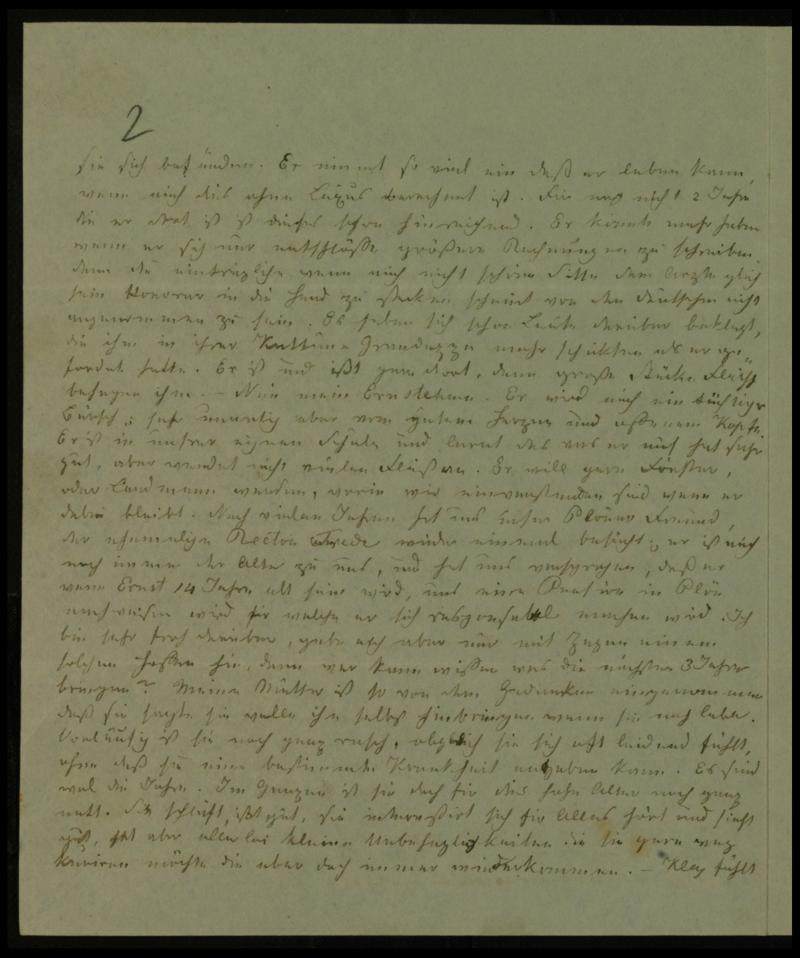 2
sie sich befänden. Er nimmt so viel ein daß er leben kann,
wenn auch dies ohne Luxus berechnet ist. Für noch nicht 2 Jahre
die er dort ist ist dieses schon hinreichend. Er könnte mehr haben
wenn er sich nur entschlösse größere Rechnungen zu schreiben.
denn die einträgliche wenn auch nicht schöne Sitte dem Arzte gleich
sein Honorar in die Hand zu stecken scheint von den Deutschen nicht
angenommen zu sein. Es haben sich schon Leute darüber beklagt,
die ihm in ihrer mehr schickten als er ge-
fordert hatte. Er ist und ißt gern dort, denn große Stücke Fleisch
behagen ihm. – Nun mein Ernstchen. Er wird auch ein tüchtiger
Bursch; sehr unartig aber von gutem Herzen und offenem Kopfe.
Er ist in unsrer eignen Schule und lernt das was er muß sehr
gut, aber wendet nicht vielen Fleiß an. Er will gern Förster,
oder Landmann werden, worin wir einverstanden sind wenn er
dabei bleibt. Nach vielen Jahren hat uns unser Plöner Freund,
der ehemalige Rector Trede wieder einmal besucht; er ist auch
noch immer der Alte zu uns, und hat uns versprochen, daß er
wenn Ernst 14 Jahre alt sein wird, uns eine Pension in Plön
nachweisen wird für welche er sich responsabel machen wird. Ich
bin sehr froh darüber, gebe mich aber nur mit Zagen einem
solchen Hoffen hin, denn wer kann wissen was die nächsten 3 Jahre
bringen? Meine Mutter ist so von dem Gedanken eingenommen
daß sie sagte sie wolle ihn selbst hinbringen wenn sie noch lebe.
Vorläufig ist sie noch ganz rasch, obgleich sie sich oft leidend fühlt,
ohne daß sie eine bestimmte Krankheit angeben kann. Es sind
wol die Jahre. Im Ganzen ist sie doch für dies hohe Alter noch ganz
nett. Sie schläft, ißt gut, sie interessirt sich für Alles hört und sieht
gut, hat aber allerlei kleine Unbehaglichkeiten die sie gern weg
kuriren möchte die aber doch immer wiederkommen. – Klay fühlt